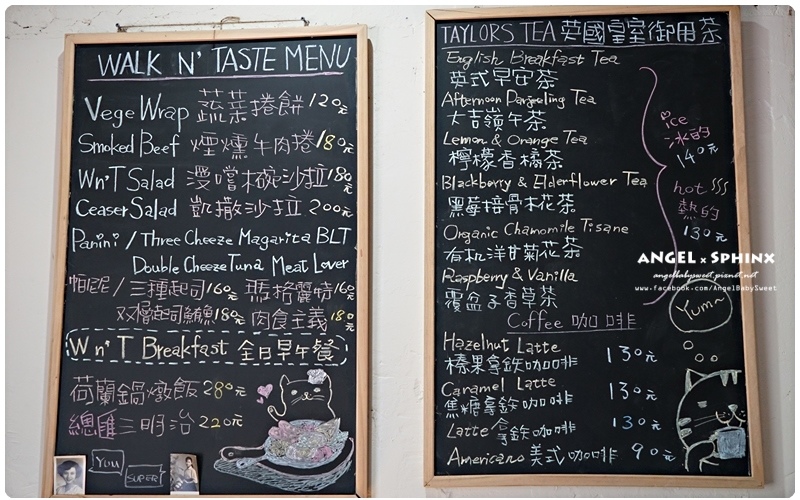 WALK N' TASTE MENU
Vege Wrap 蔬菜捲餅 120元
Smoked Beef 煙燻牛肉捲 180元
Wn'T Salad 漫嚐碗沙拉 180元
Ceaser Salad 凱撒沙拉 200元
Panini / Three Cheeze Magarita BLT
Double Cheeze Tuna Meat Lover
帕尼尼 / 三種起司 160元 瑪格麗特 160元
双層起司鮪魚 180元 肉食主義 180
Wn'T Breakfast 全日早午餐
荷蘭鍋燉飯 280元
總匯三明治 220元
YOU
SUPER!
TAYLORS TEA 英國皇室御用茶
English Breakfast Tea
英式早安茶
Afternoon Darjeeling Tea
大吉嶺午茶
Lemon & Orange Tea
檸檬香橘茶
Blackberry & Elderflower Tea
黑莓接骨木花茶
Organic Chamomile Tisane
有机洋甘菊花茶
Raspberry & Vanilla
覆盆子香草茶
ice
冰的
140元
hot
熱的
130元
Coffee 咖啡
Hazelnut Latte
榛果拿鉄咖啡 130元
Caramel Latte
焦糖拿鉄咖啡 130元
Latte 拿鉄咖啡 130元
Americano 美式咖啡 90元
Yum~
ANGEL x SPHINX
angelbabysweet.pixnet.net
www.facebook.com/AngelBabySweet